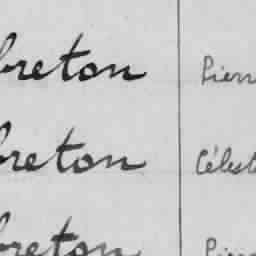 breton Pierr
breton Célest
breton Pierr